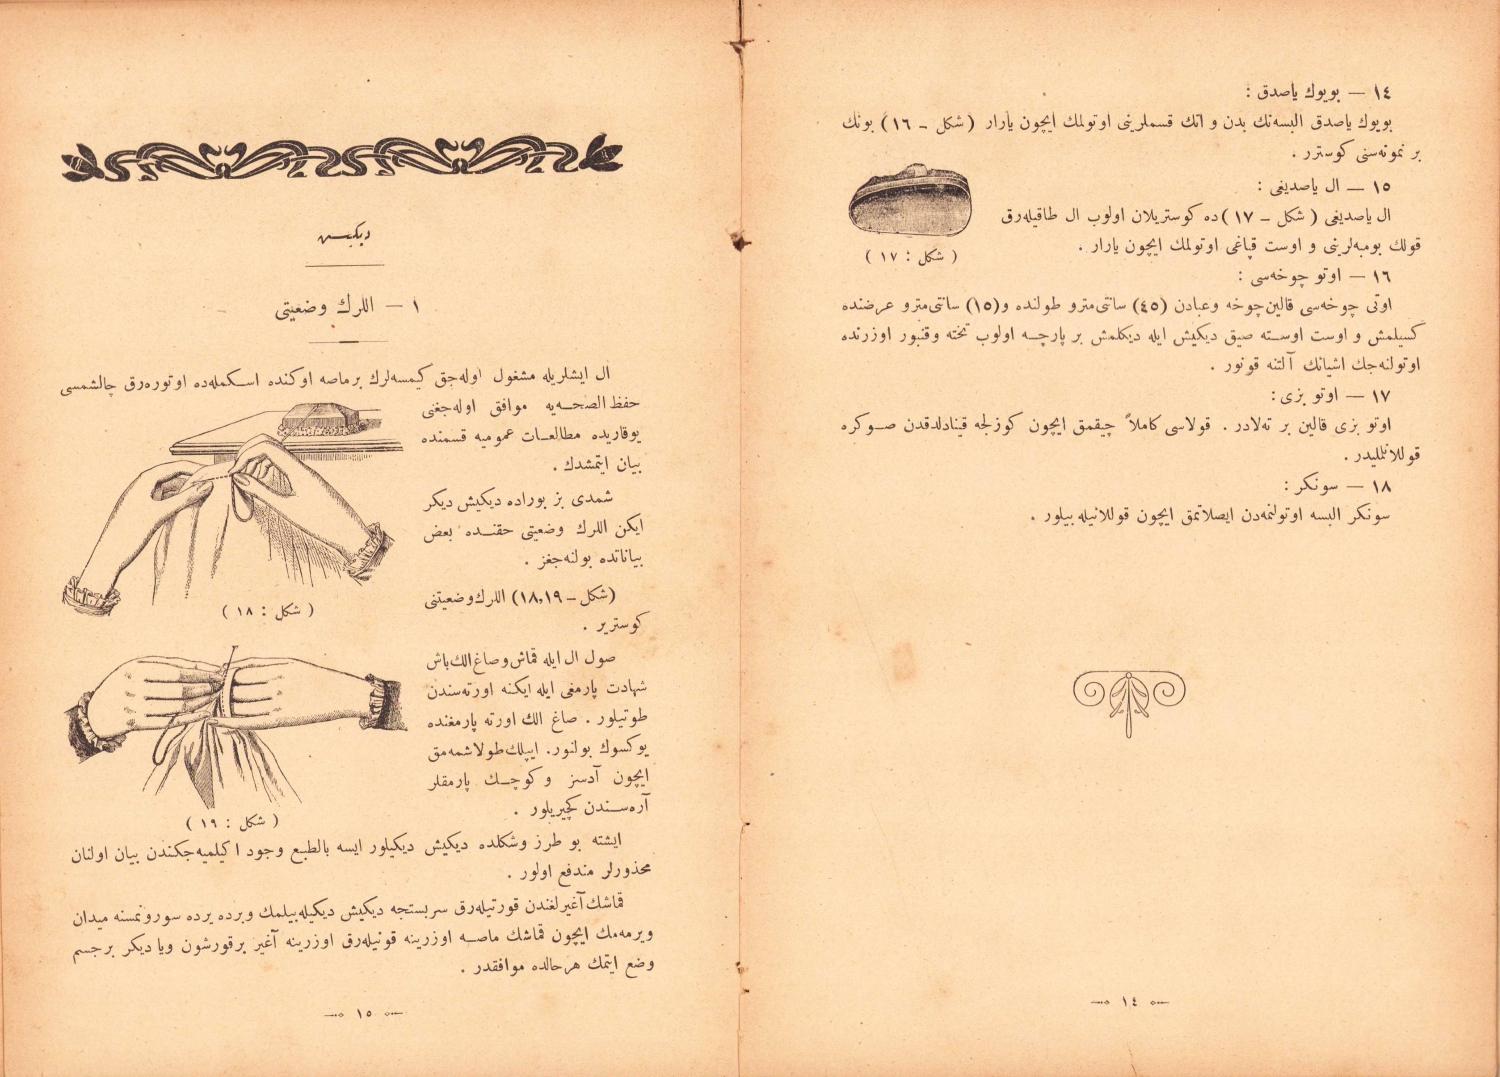 ١٤ — بويوك ياصدق :
بويوك ياصدق البسه‌نك بدن و اتك قسملرينى اوتولمك ايچون يارار ( شكل – ١٦ ) بونك
بر نمونه‌سنى كوسترر .
١٥ — ال ياصديغى :
ال ياصديغى ( شكل – ١٧ ) ده كوستريلان اولوب ال طاقيله‌رق
قولك بومبه‌لرينى و اوست قپاغى اوتولمك ايچون يارار .
( شكل : ١٧ )
١٦ — اوتو چوخه‌سى :
اوتى چوخه‌سى قالين چوخه وعبادن (٤٥) سانتى‌مترو طولنده و(١٥) سانتى‌مترو عرضنده
كسيلمش و اوست اوسته صيق ديكيش ايله ديكلمش بر پارچه اولوب تخته وقنبور اوزرنده
اوتولنه‌جك اشيانك آلتنه قونور .
١٧ — اوتو بزى :
اوتو بزى قالين بر ته‌لادر . قولاسى كاملاً چيقمق ايچون كوزلجه قينادلدقدن صوكره
قوللانلميلدر .
١٨ — سونكر :
سونكر البسه اوتولنمه‌دن ايصلاتمق ايچون قوللانيله بيلور .
١٤
ديكيش
١ — اللرك وضعيتى
ال ايشلريله مشغول اوله‌جق كيمسه‌لرك بر ماصه اوكنده اسكمله‌ده اوتوره‌رق چالشمسى
حفظ الصحه‌يه موافق اوله‌جغنى
يوقاريده مطالعات عموميه قسمنده
بيان ايتمشدك .
شمدى بز بوراده ديكيش ديكر
ايكن اللرك وضعيتى حقنده بعض
بياناتده بولنه‌جغز .
( شكل : ١٨ )
(شكل – ١٨,١٩) اللرك وضعيتنى
كوسترير .
صول ال ايله قماش و صاغ الك باش
شهادت پارمغى ايله ايكنه اورته‌سندن
طوتيلور . صاغ الك اورته پارمغنده
يوكسوك بولنور. ايپلك طولاشمه‌مق
ايچون آدسز وكوچك پارمقلر
آره‌سندن كچيريلور .
( شكل : ١٩ )
ايشته بو طرز وشكلده ديكيش ديكيلور ايسه بالطبع وجود اكيلميه‌جكندن بيان اولنان
محذورلر مندفع اولور .
قماشك آغيرلغندن قورتيله‌رق سربستجه ديكيش ديكيله‌بيلمك ويرده يرده سورونمسنه ميدان
ويرمه‌مك ايچون قماشك ماصه اوزرينه قونيله‌رق اوزرينه آغير برقورشون ويا ديكر برجسم
وضع ايتمك هرحالده موافقدر .
١٥